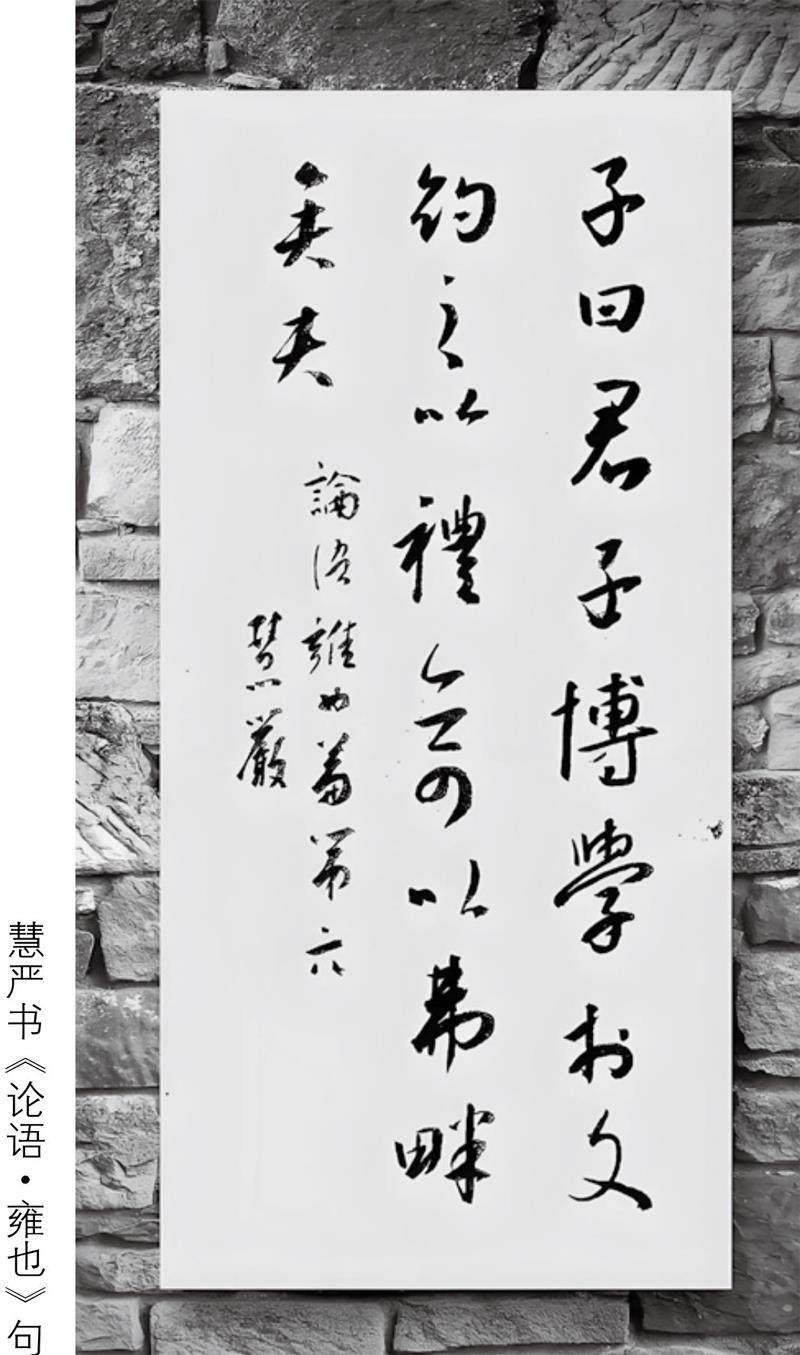 子曰君子博學於文
約之以禮亦可以弗畔
矣夫
論語雍也篇第六
慧嚴
慧严书《论语·雍也》句